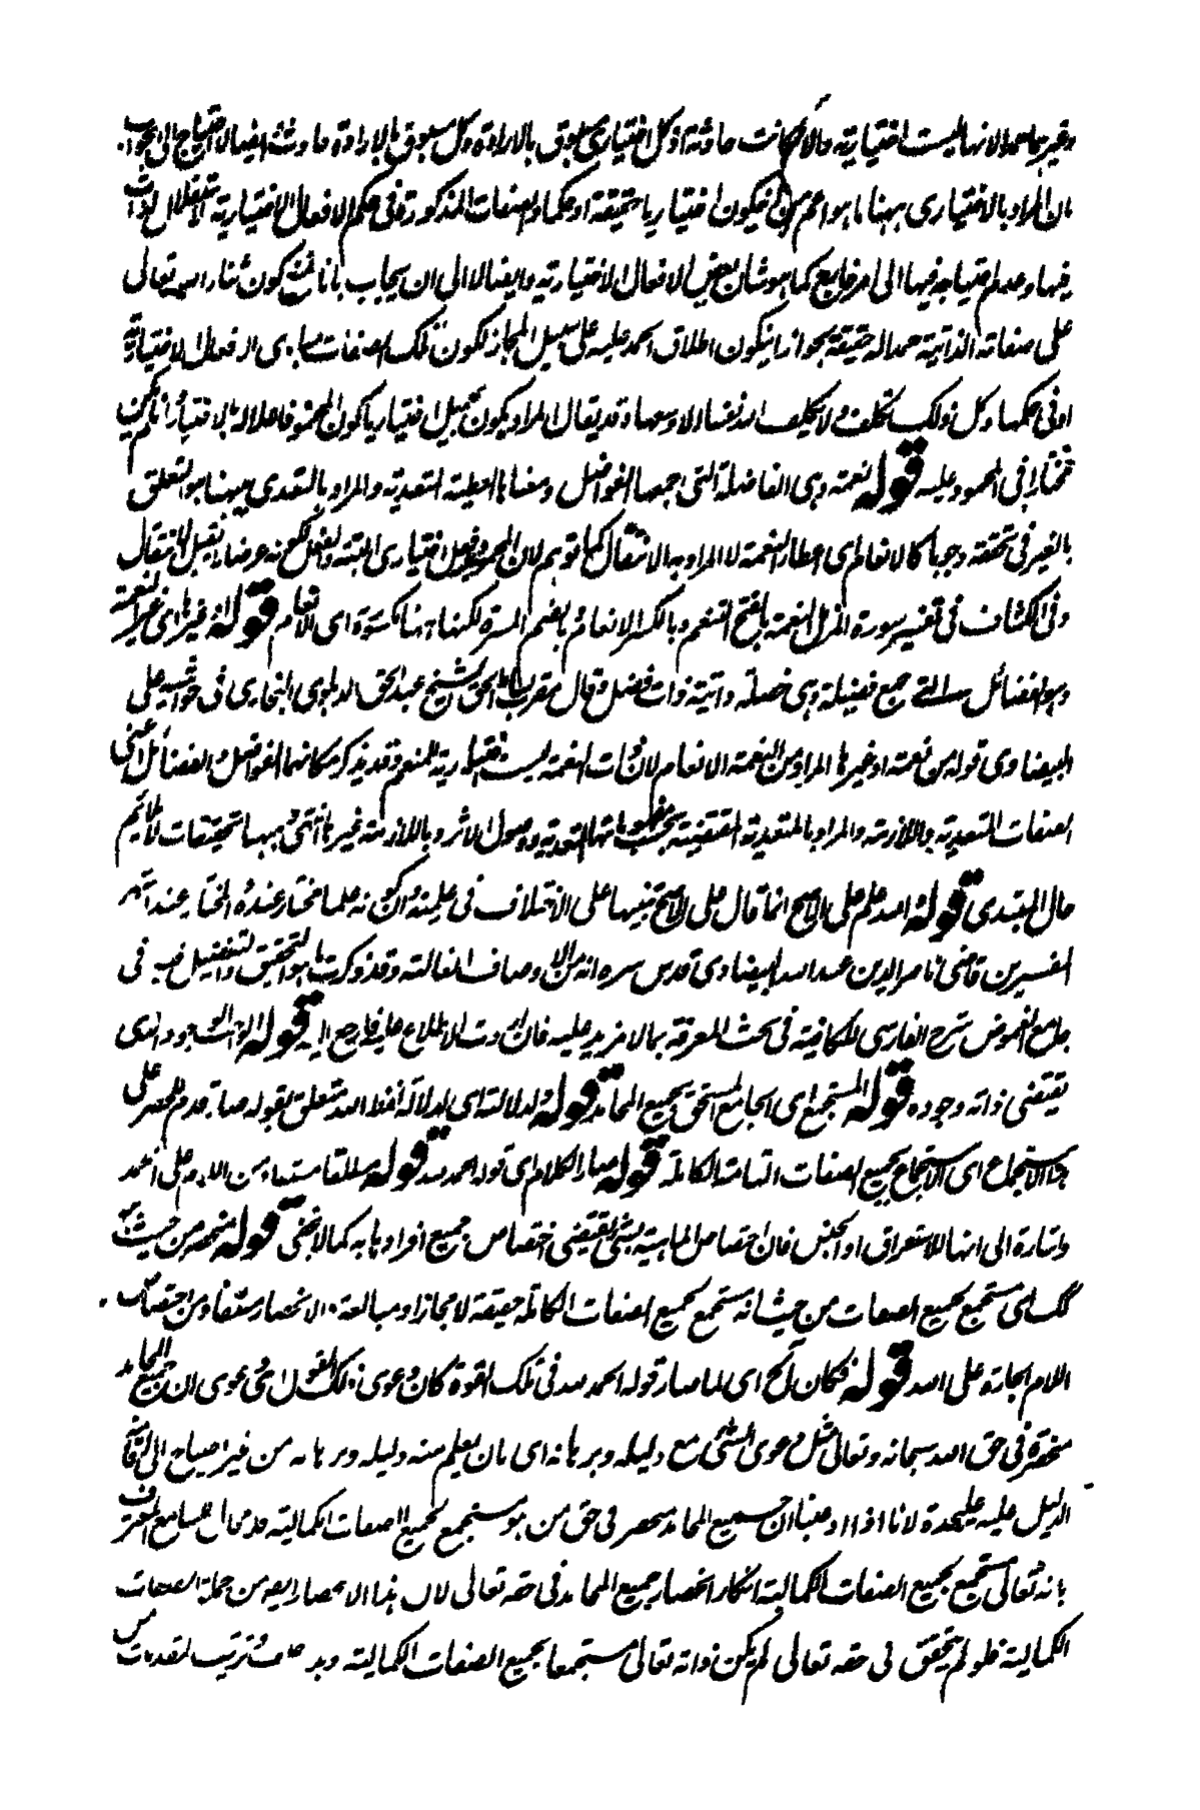 وغيرها حمدا لانها ليست اختيارية والا لكانت حادثة اذ كل اختياري مسبوق بالارادة وكل مسبوق بالارادة حادث ايضا لاحتياج الى الجواب
بان المراد بالاختياري ههنا ما هو اعم من ان يكون اختياريا حقيقة او حكما والصفات المذكورة في حكم الافعال الاختيارية لاستقلال الذات
فيها وعدم احتياجه فيها الى امر خارج كما هو شان بعض الافعال الاختيارية وايضا لا الى ان يجاب بانا نمنع كون ثناء الله تعالى
على صفاته الذاتية حمدا له حقيقة بجواز ان يكون اطلاق الحمد عليه على سبيل المجاز لكون تلك الصفات مبادي الافعال الاختيارية
او في حكمها وكل ذلك تكلف ولا يكلف الله نفسا الا وسعها وقد يقال المراد بكون الجميل اختياريا كون المحمود فاعلا له بالاختيار وان لم يكن
مختارا في المحمود عليه قوله نعمة وهي الفاضلة التي جمعها الفواضل ومعناها العطية المتعدية والمراد بالتعدي ههنا هو التعلق
بالغير في تحققه وجها كالانعام اي اعطاء النعمة لا المراد به الانتقال كما توهم لان المحمود فعل اختياري البتة والفعل لكونه عرضا لا يقبل الانتقال
وفي الكشاف في تفسير سورة المزمل النعمة بالفتح التنعم وبالكسر الانعام وبالضم المسرة لكنها ههنا مكسورة اي الانعام قوله او غيرها اي غير النعمة
وهو الفضائل التي جمع فضيلة وهي خصلة ذاتية ذات فضل وقال مقرب الحق الشيخ عبد الحق الدهلوي البخاري في حواشيه على
البيضاوي قوله من نعمة او غيرها المراد من النعمة الانعام لان ذات النعمة ليست اختيارية للمنعم وقد يذكر مكانهما الفواضل والفضائل اعني
الصفات المتعدية واللازمة والمراد بالمتعدية المقتضية بحسب مفهوماتها التعدية ووصول الاثر وباللازمة غيرها انتهى وههنا تحقيقات لا يلائم
حال المبتدي قوله الله علم على الاصح انما قال على الاصح تنبيها على الاختلاف في علميته وان كونه علما مختار عنده والمختار عند اشهر
المفسرين قاضي ناصر الدين عبد الله البيضاوي قدس سره انه من الاوصاف الغالبة وقد ذكرت ما هو التحقيق والتفضيل فيه في
جامع الغموض شرح الفارسي للكافية في بحث المعرفة بما لا مزيد عليه فان اردت الاطلاع عليه فارجع اليه قوله الواجب الوجود والذي
يقتضي ذاته وجوده قوله المستجمع اي الجامع المستحق بجميع المحامد قوله ولدلالته اي لدلالة لفظ الله متعلق بقوله صار قدم للحصر على
هذا الاستجماع اي الاستجماع لجميع الصفات التامة الكاملة قوله صار الكلام اي قوله الحمد لله قوله مطلقا مستفاد من اللام على الحمد
واشارة الى انها للاستغراق او الجنس فان اختصاص الماهية بشئ يقتضي اختصاص جميع افرادها به كما لا يخفى قوله منحصر من حيث
اي مستجمع لجميع الصفات من حيث انه مستجمع لجميع الصفات الكاملة حقيقة لا مجازا ومبالغة والانحصار مستفاد من اختصاص
اللام الجارة على الله قوله فكان الخ اي لما صار قوله الحمد لله في تلك القوة كان دعوى ذلك القول اي دعوى ان جميع المحامد
منحصرة في حق الله سبحانه وتعالى مثل دعوى الشئ مع دليله وبرهانه اي بان يعلم منه دليله وبرهانه من غير احتياج الى اقامة
الدليل عليه عليحدة لانا اذا ادعينا ان جميع المحامد منحصر في حق من هو مستجمع لجميع الصفات الكمالية السامع المعترف
بانه تعالى مستجمع بجميع الصفات الكمالية انكار انحصار جميع المحامد في حقه تعالى لان هذا الانحصار ايضا من جملة الصفات
الكمالية فلو لم يتحقق في حقه تعالى لم يكن ذاته تعالى مستجمعا بجميع الصفات الكمالية ترتيب المقدمات